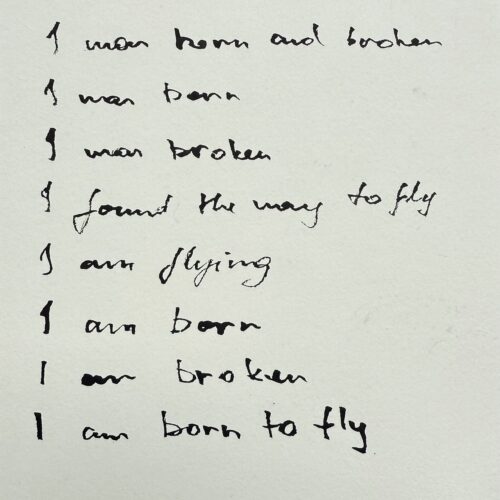 I was born and broken
I was born
I was broken
I found the way to fly
I am flying
I am born
I am broken
I am born to fly